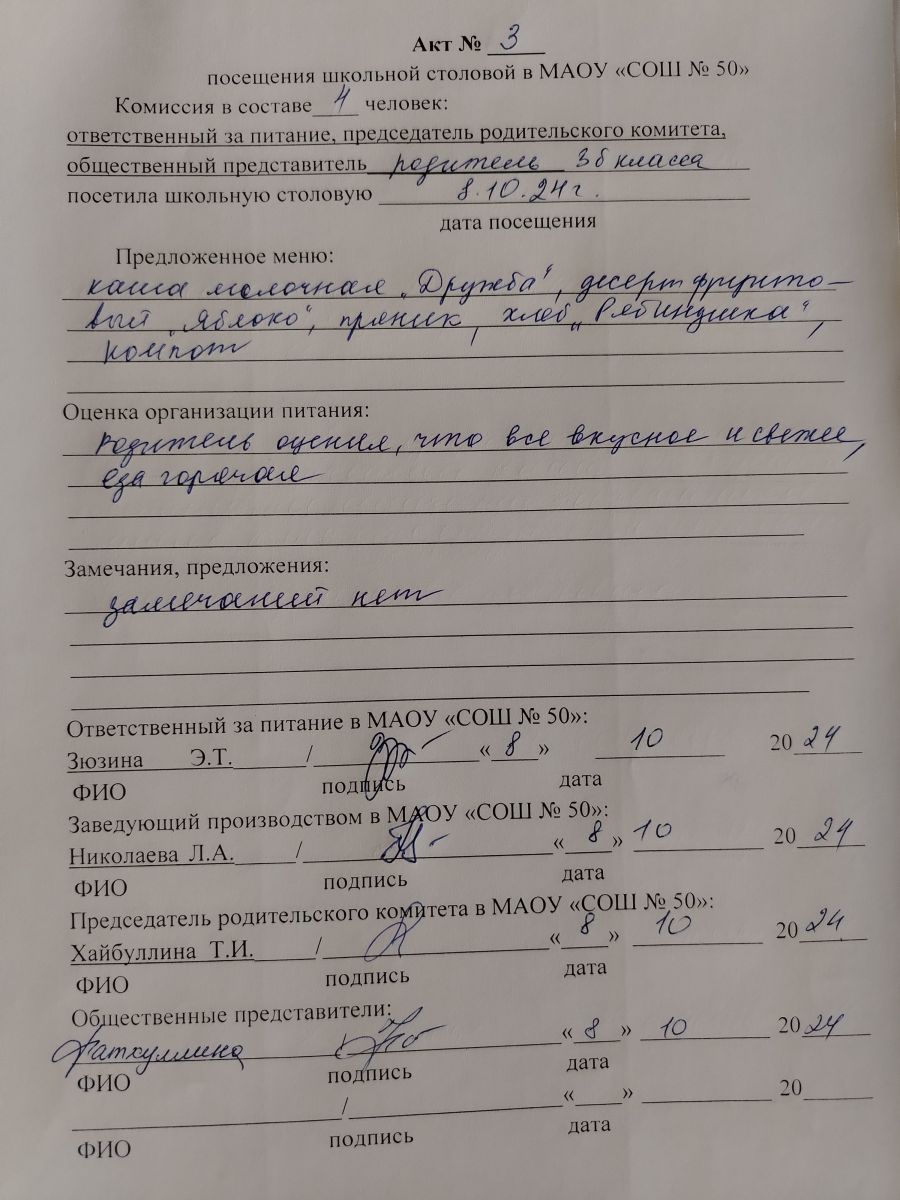 Акт № 3
посещения школьной столовой в МАОУ «СОШ № 50»
Комиссия в составе 4 человек:
ответственный за питание, председатель родительского комитета,
общественный представитель родитель 3б класса
посетила школьную столовую 8.10.24г.
дата посещения
Предложенное меню:
каша молочная „Дружба", десерт фрукто-
вый „Яблоко", пряник, хлеб „Рябинушка",
компот
Оценка организации питания:
родитель оценил, что все вкусное и свежее,
еда горячая
Замечания, предложения:
замечаний нет
Ответственный за питание в МАОУ «СОШ № 50»:
Зюзина Э.Т. / «8» 10 2024
ФИО подпись дата
Заведующий производством в МАОУ «СОШ № 50»:
Николаева Л.А. / «8» 10 2024
ФИО подпись дата
Председатель родительского комитета в МАОУ «СОШ № 50»:
Хайбуллина Т.И. / «8» 10 2024
ФИО подпись дата
Общественные представители:
Фаткуллина / «8» 10 2024
ФИО подпись дата
/ « » 20
ФИО подпись дата